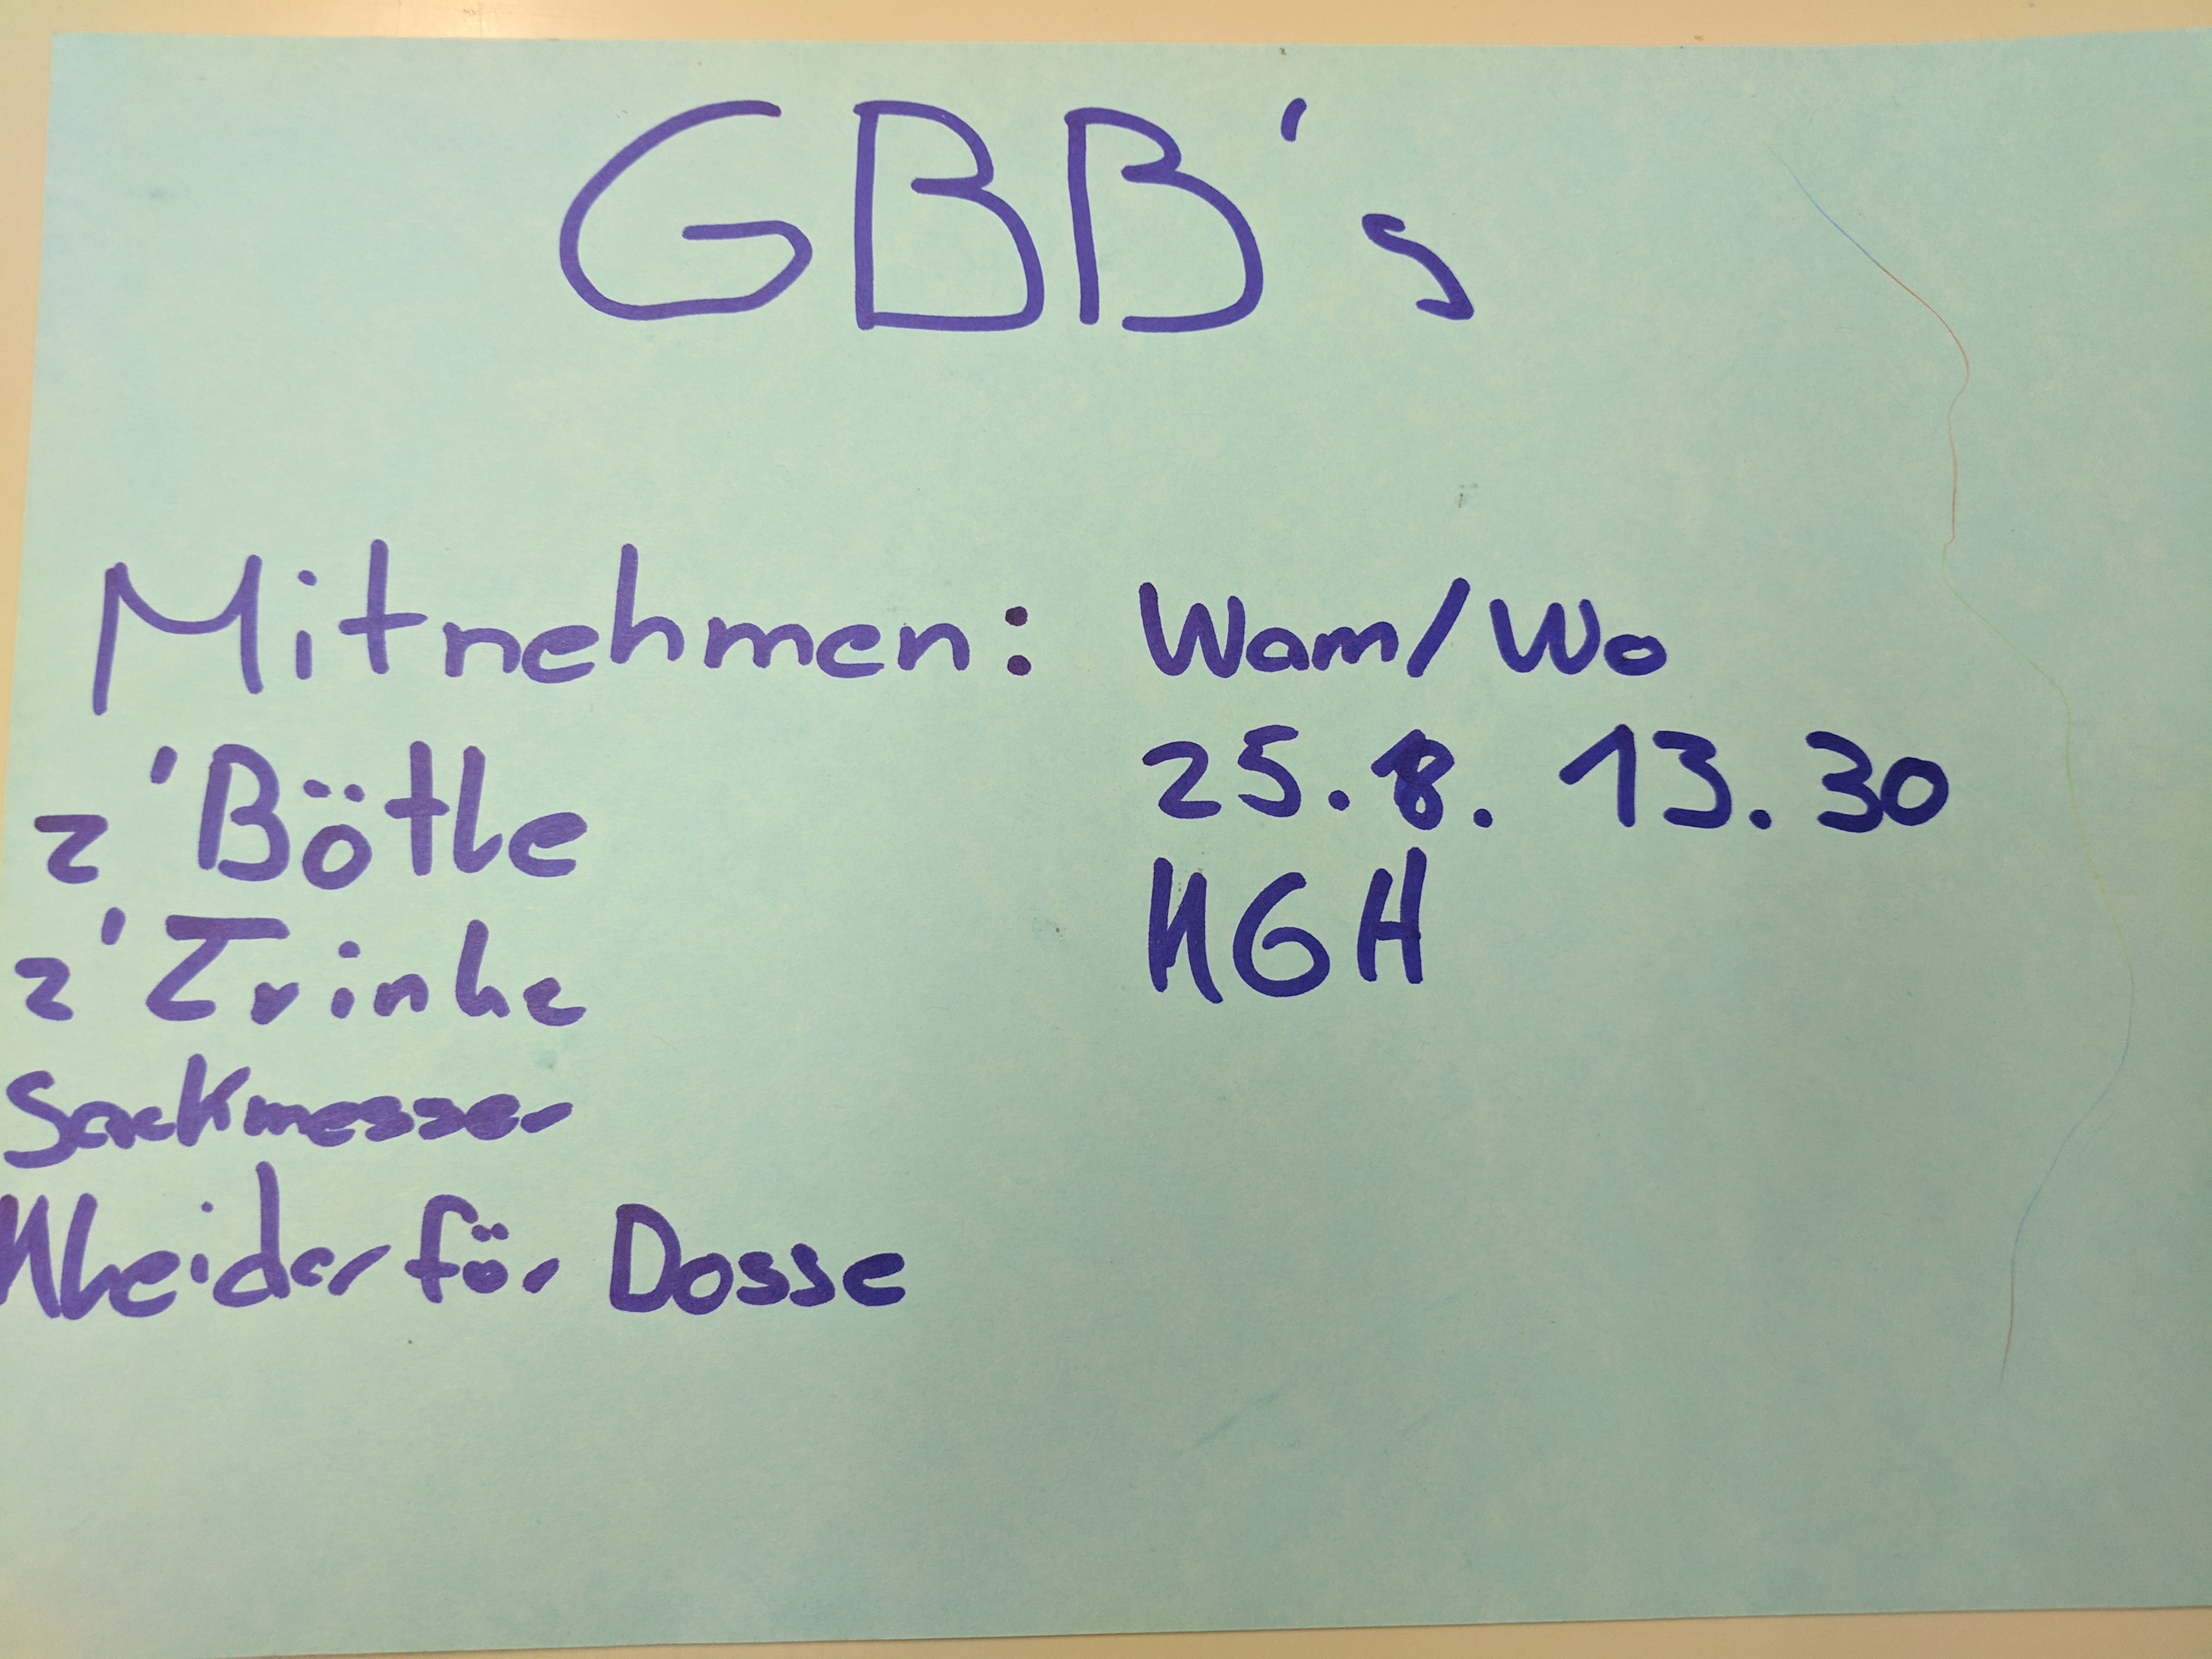 GBB's
Mitnehmen:
z'Bötle
z'Trinke
Sackmesser
Kleider för Dosse
Wam/Wo
25.8. 13.30
KGH